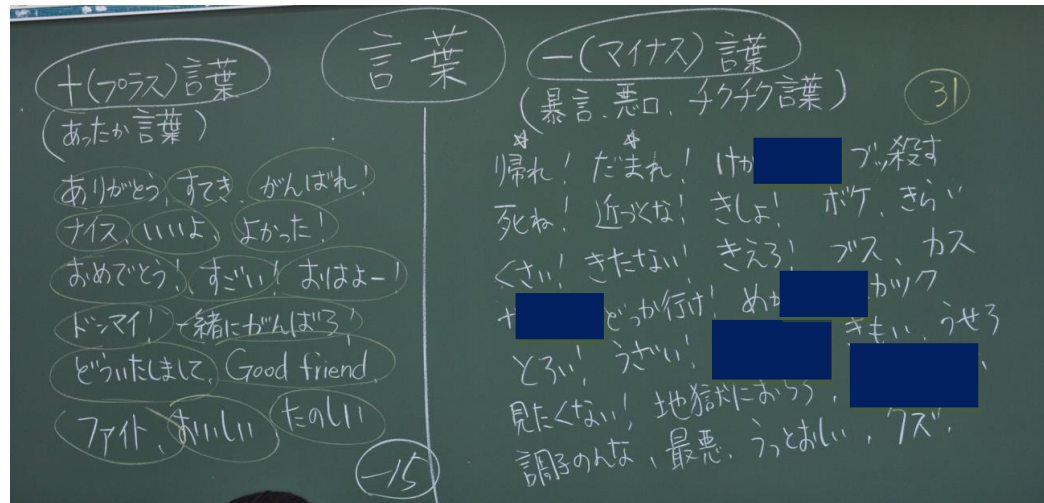 言葉
+(プラス)言葉
(あったか言葉)
ありがとう、すてき、がんばれ!
ナイス、いいよ、よかった!
おめでとう! すごい! おはよー!
ドンマイ! 一緒にがんばろう!
どういたしまして、Good friend.
ファイト、おいしい、たのしい
-15
-(マイナス)言葉
(暴言、悪口、チクチク言葉)
31
帰れ! だまれ! けが ブッ殺す
死ね! 近づくな! きしょ! ボケ、きらい
くさい! きたない! きえろ! ブス、カス
どっか行け! めが カツク
とろい! うざい! きもい、うせろ
見たくない! 地獄におちろ、
調子のんな、最悪、うっとおしい、クズ、